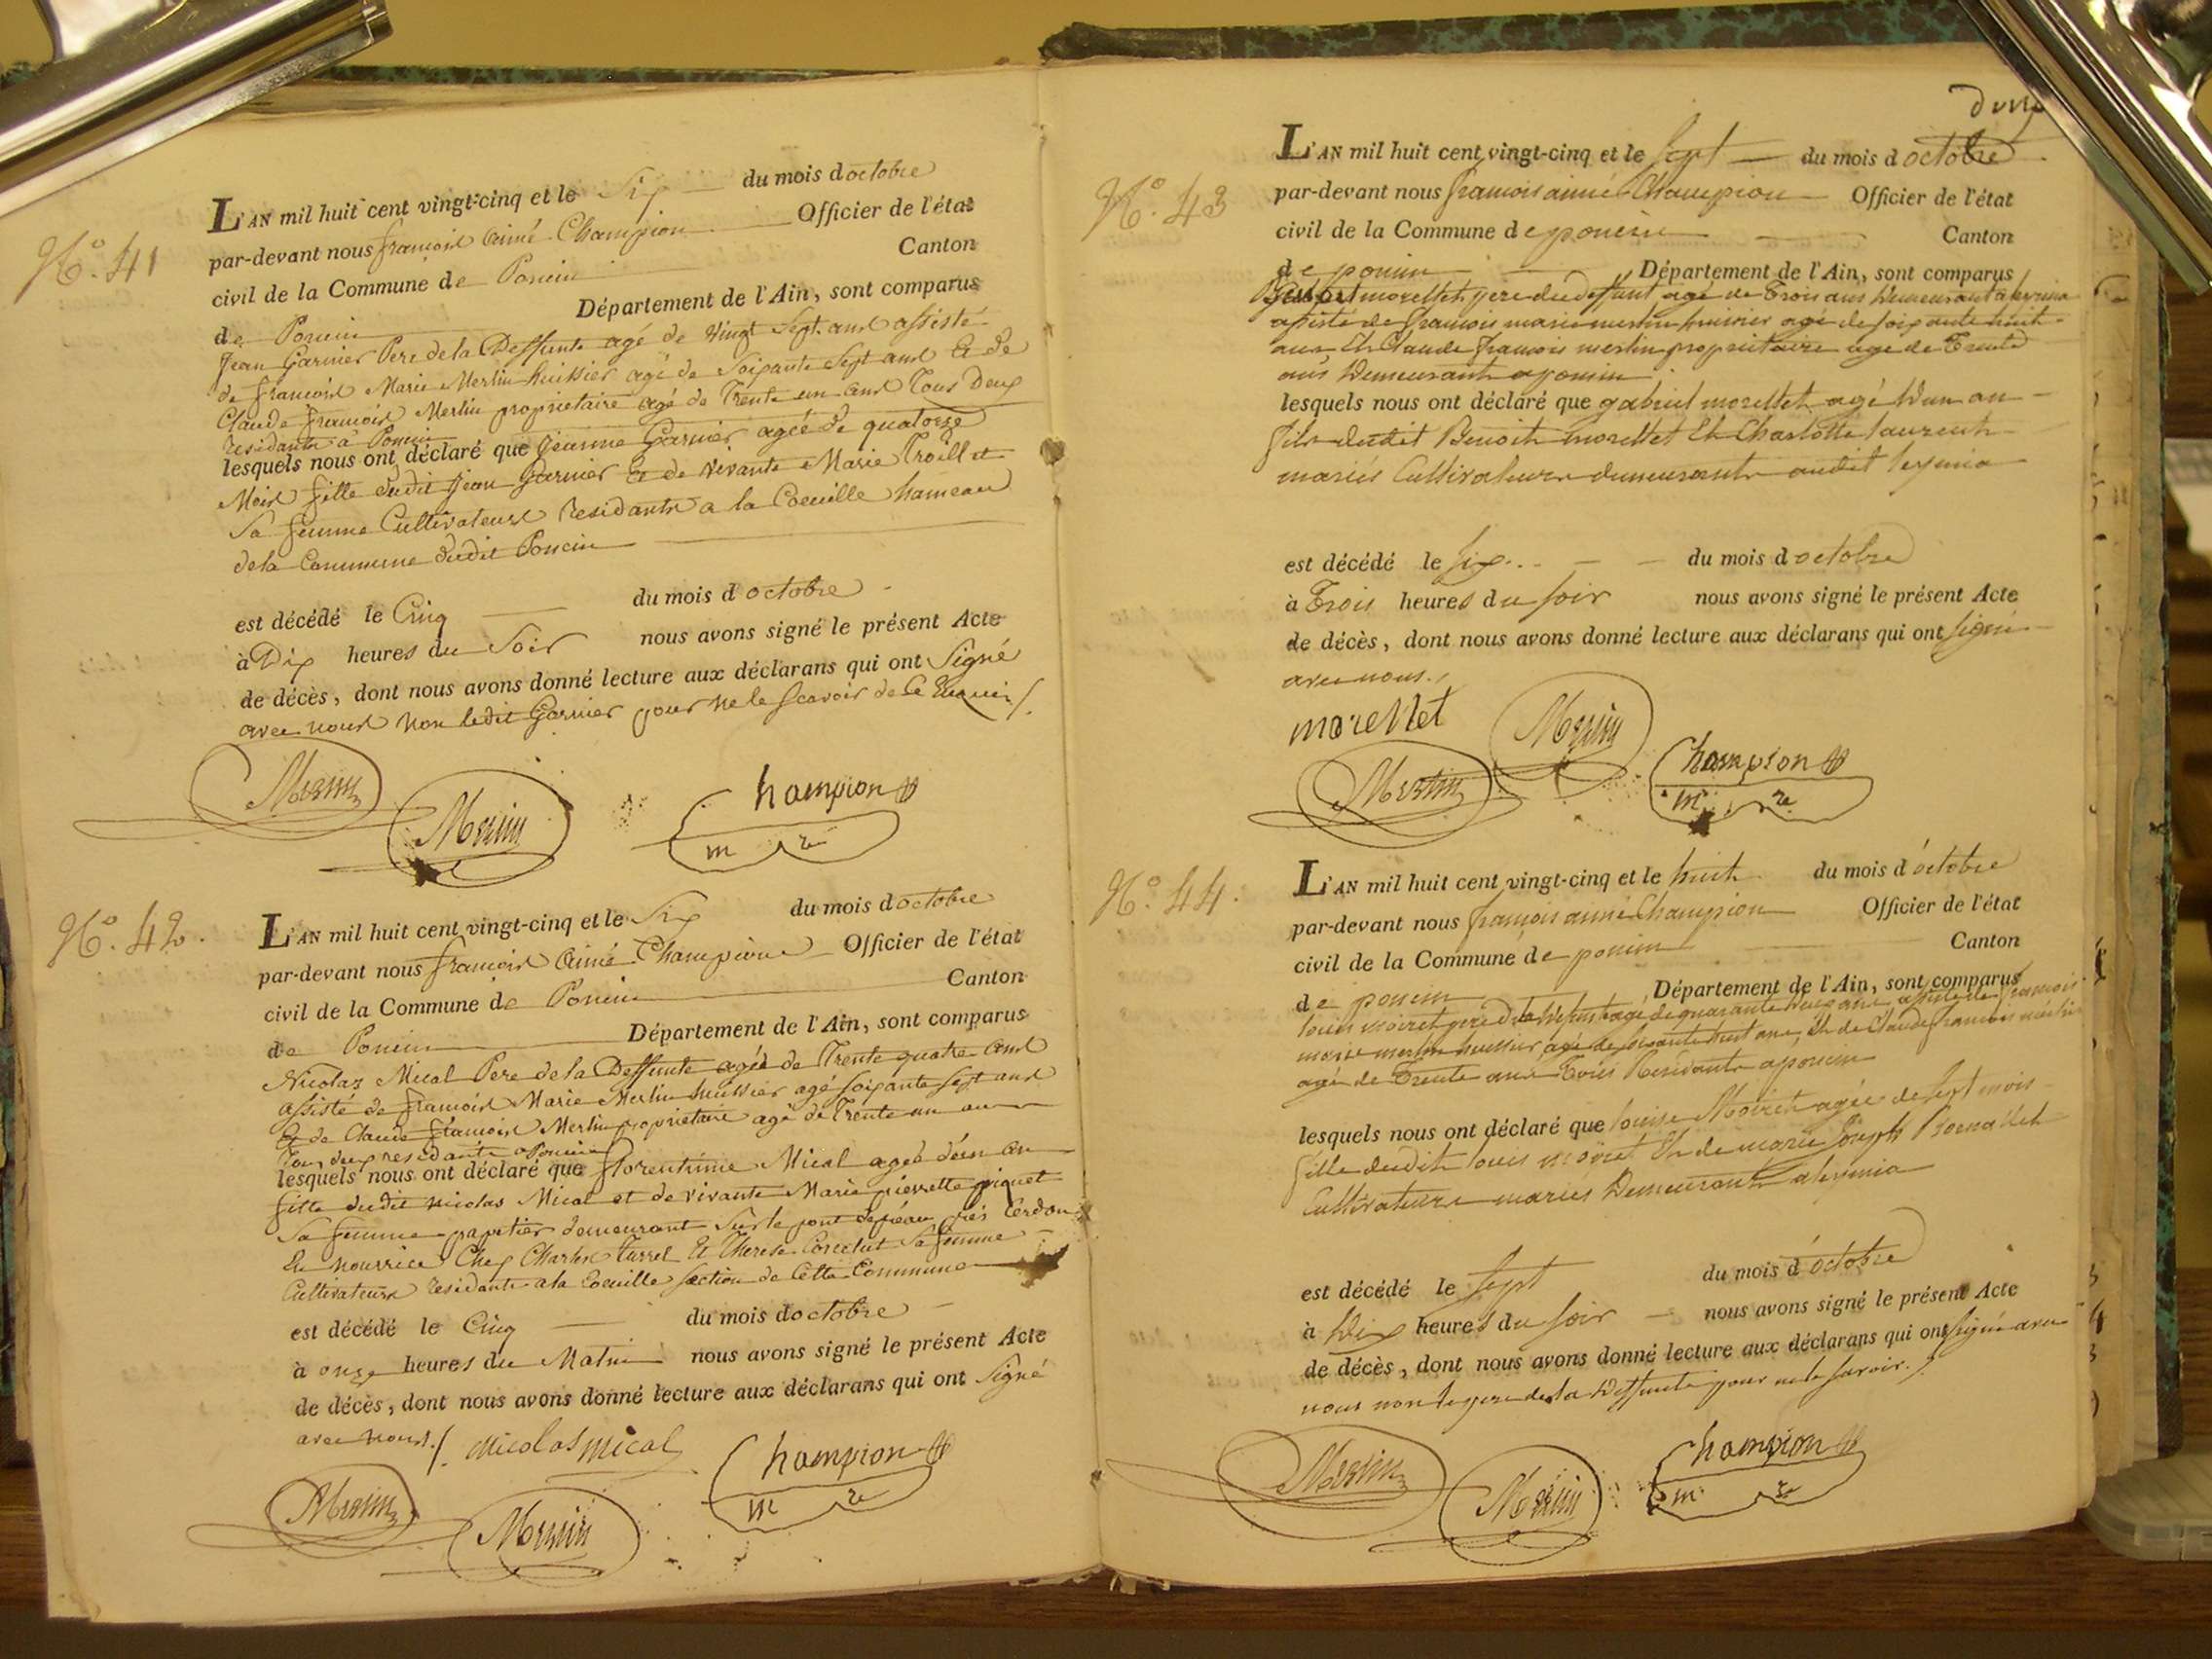 N.º 41
L'AN mil huit cent vingt-cinq et le Six du mois d octobre
par-devant nous françois Aimé Champion Officier de l'état
civil de la Commune de Poncin Canton
de Poncin Département de l'Ain, sont comparus
Jean Garnier Pere de la Deffunte agé de vingt Sept ans assisté
de françois Marie Merlin huissier agé de Soixante Sept ans Et de
Claude françois Merlin proprietaire agé de Trente un ans Tous Deux
residants à Poncin
lesquels nous ont déclaré que jeanne Garnier agée de quatorze
Mois fille dudit Jean Garnier Et de vivante Marie
Sa femme Cultivateurs residants a la Coeuille hameau
de la Commune dudit Poncin
est décédé le Cinq du mois d octobre
à Dix heures du Soir nous avons signé le présent Acte
de décès, dont nous avons donné lecture aux déclarans qui ont Signé
avec nous non ledit Garnier pour ne le Scavoir de ce Enquis /.
Merlin
Merlin
Champion
m re
N.º 42.
L'AN mil huit cent vingt-cinq et le Six du mois d octobre
par-devant nous françois Aimé Champion Officier de l'état
civil de la Commune de Poncin Canton
de Poncin Département de l'Ain, sont comparus
Nicolas Mical Pere de la Deffunte agé de Trente quatre ans
assisté de françois Marie Merlin huissier agé soixante sept ans
Et de Claude françois Merlin proprietaire agé de Trente un ans
Tous deux residants a Poncin
lesquels nous ont déclaré que florentine Mical ageé d'un an
fille dudit nicolas Mical et de vivante Marie pierrette piquet
Sa femme papetier demeurant Sur le pont près Cerdon
En nourrice Chez Charles Et Therese Sa femme
Cultivateurs residants a la Coeuille Section de Cette Commune
est décédé le Cinq du mois d octobre
à onze heures du Matin nous avons signé le présent Acte
de décès, dont nous avons donné lecture aux déclarans qui ont Signé
avec nous./. Nicolas mical
Merlin
Merlin
Champion
m re
N.º 43
L'AN mil huit cent vingt-cinq et le Sept du mois d octobre
par-devant nous françois aimé Champion Officier de l'état
civil de la Commune de poncin Canton
de poncin Département de l'Ain, sont comparus
morellet pere du deffunt, agé de Trois ans demeurant a leymia
assisté de françois marie merlin huissier agé de soixante huit
ans, Et Claude françois merlin proprietaire agé de Trente
ans demeurants a poncin
lesquels nous ont déclaré que gabriel morellet agé d'un an
fils dudit Benoit morellet Et Charlotte laurent
mariés Cultivateurs demeurants audit leymia
est décédé le Six du mois d octobre
à Trois heures du soir nous avons signé le présent Acte
de décès, dont nous avons donné lecture aux déclarans qui ont signé
avec nous./
morellet
Merlin
Merlin
Champion
m re
N.º 44.
L'AN mil huit cent vingt-cinq et le huit du mois d'octobre
par-devant nous françois aimé Champion Officier de l'état
civil de la Commune de poncin Canton
de poncin Département de l'Ain, sont comparus
louis moiret pere de la deffunte agé de quarante ans, assisté de françois
marie merlin huissier, agé de soixante huit ans, Et de Claude françois merlin
agé de Trente ans Tous Residants a poncin
lesquels nous ont déclaré que louise Moiret agée de sept mois
fille dudit louis moiret Et de marie Joseph
Cultivateurs mariés demeurants a leymia
est décédé le Sept du mois d'octobre
à dix heures du soir nous avons signé le présent Acte
de décès, dont nous avons donné lecture aux déclarans qui ont signé avec
nous non le pere de la deffunte pour ne le savoir./.
Merlin
Merlin
Champion
m re